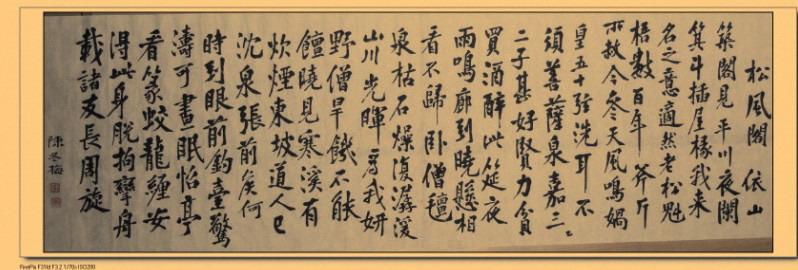 松風閣 依山
築閣見平川夜闌
箕斗插屋椽我來
名之意適然老松魁
梧數百年 斧斤
所赦今參天風鳴媧
皇五十弦洗耳不
須菩薩泉嘉三
二子甚好賢力貧
買酒醉此筵夜
雨鳴廊到曉懸相
看不歸臥僧氈
泉枯石燥復潺湲
山川光暉為我妍
野僧旱饑不能
饘曉見寒溪有
炊煙東坡道人已
沈泉張前侯何
時到眼前釣臺驚
濤可晝眠怡亭
看篆蛟龍纏安
得此身脫拘攣舟
載諸友長周旋
陳冬梅
FinePix F31fd F3.2 1/70s ISO200